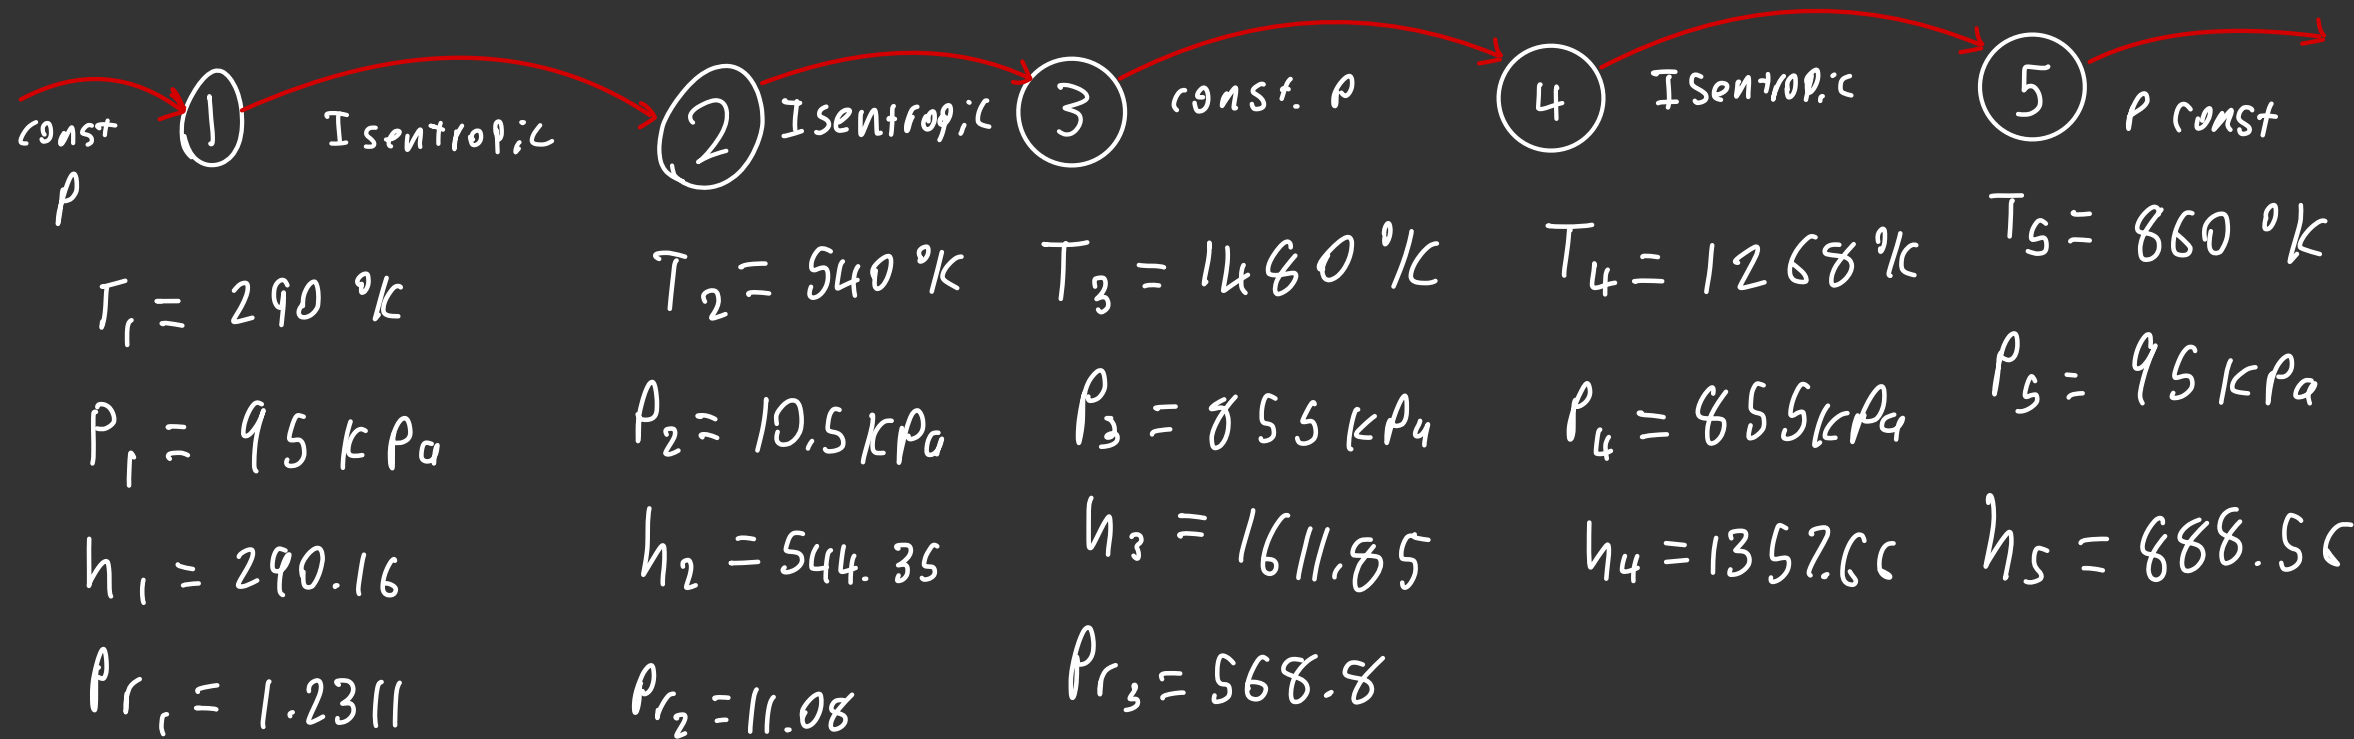 const P
1
Isentropic
2
Isentropic
3
const. P
4
Isentropic
5
P const
T₁ = 290 °K
P₁ = 95 kPa
h₁ = 290.16
Pr₁ = 1.2311
T₂ = 540 °K
P₂ = 10.5 kPa
h₂ = 544.35
Pr₂ = 11.08
T₃ = 1480 °K
P₃ = 855 kPa
h₃ = 1611.85
Pr₃ = 568.8
T₄ = 1268 °K
P₄ = 855 kPa
h₄ = 1357.66
T₅ = 860 °K
P₅ = 95 kPa
h₅ = 888.56